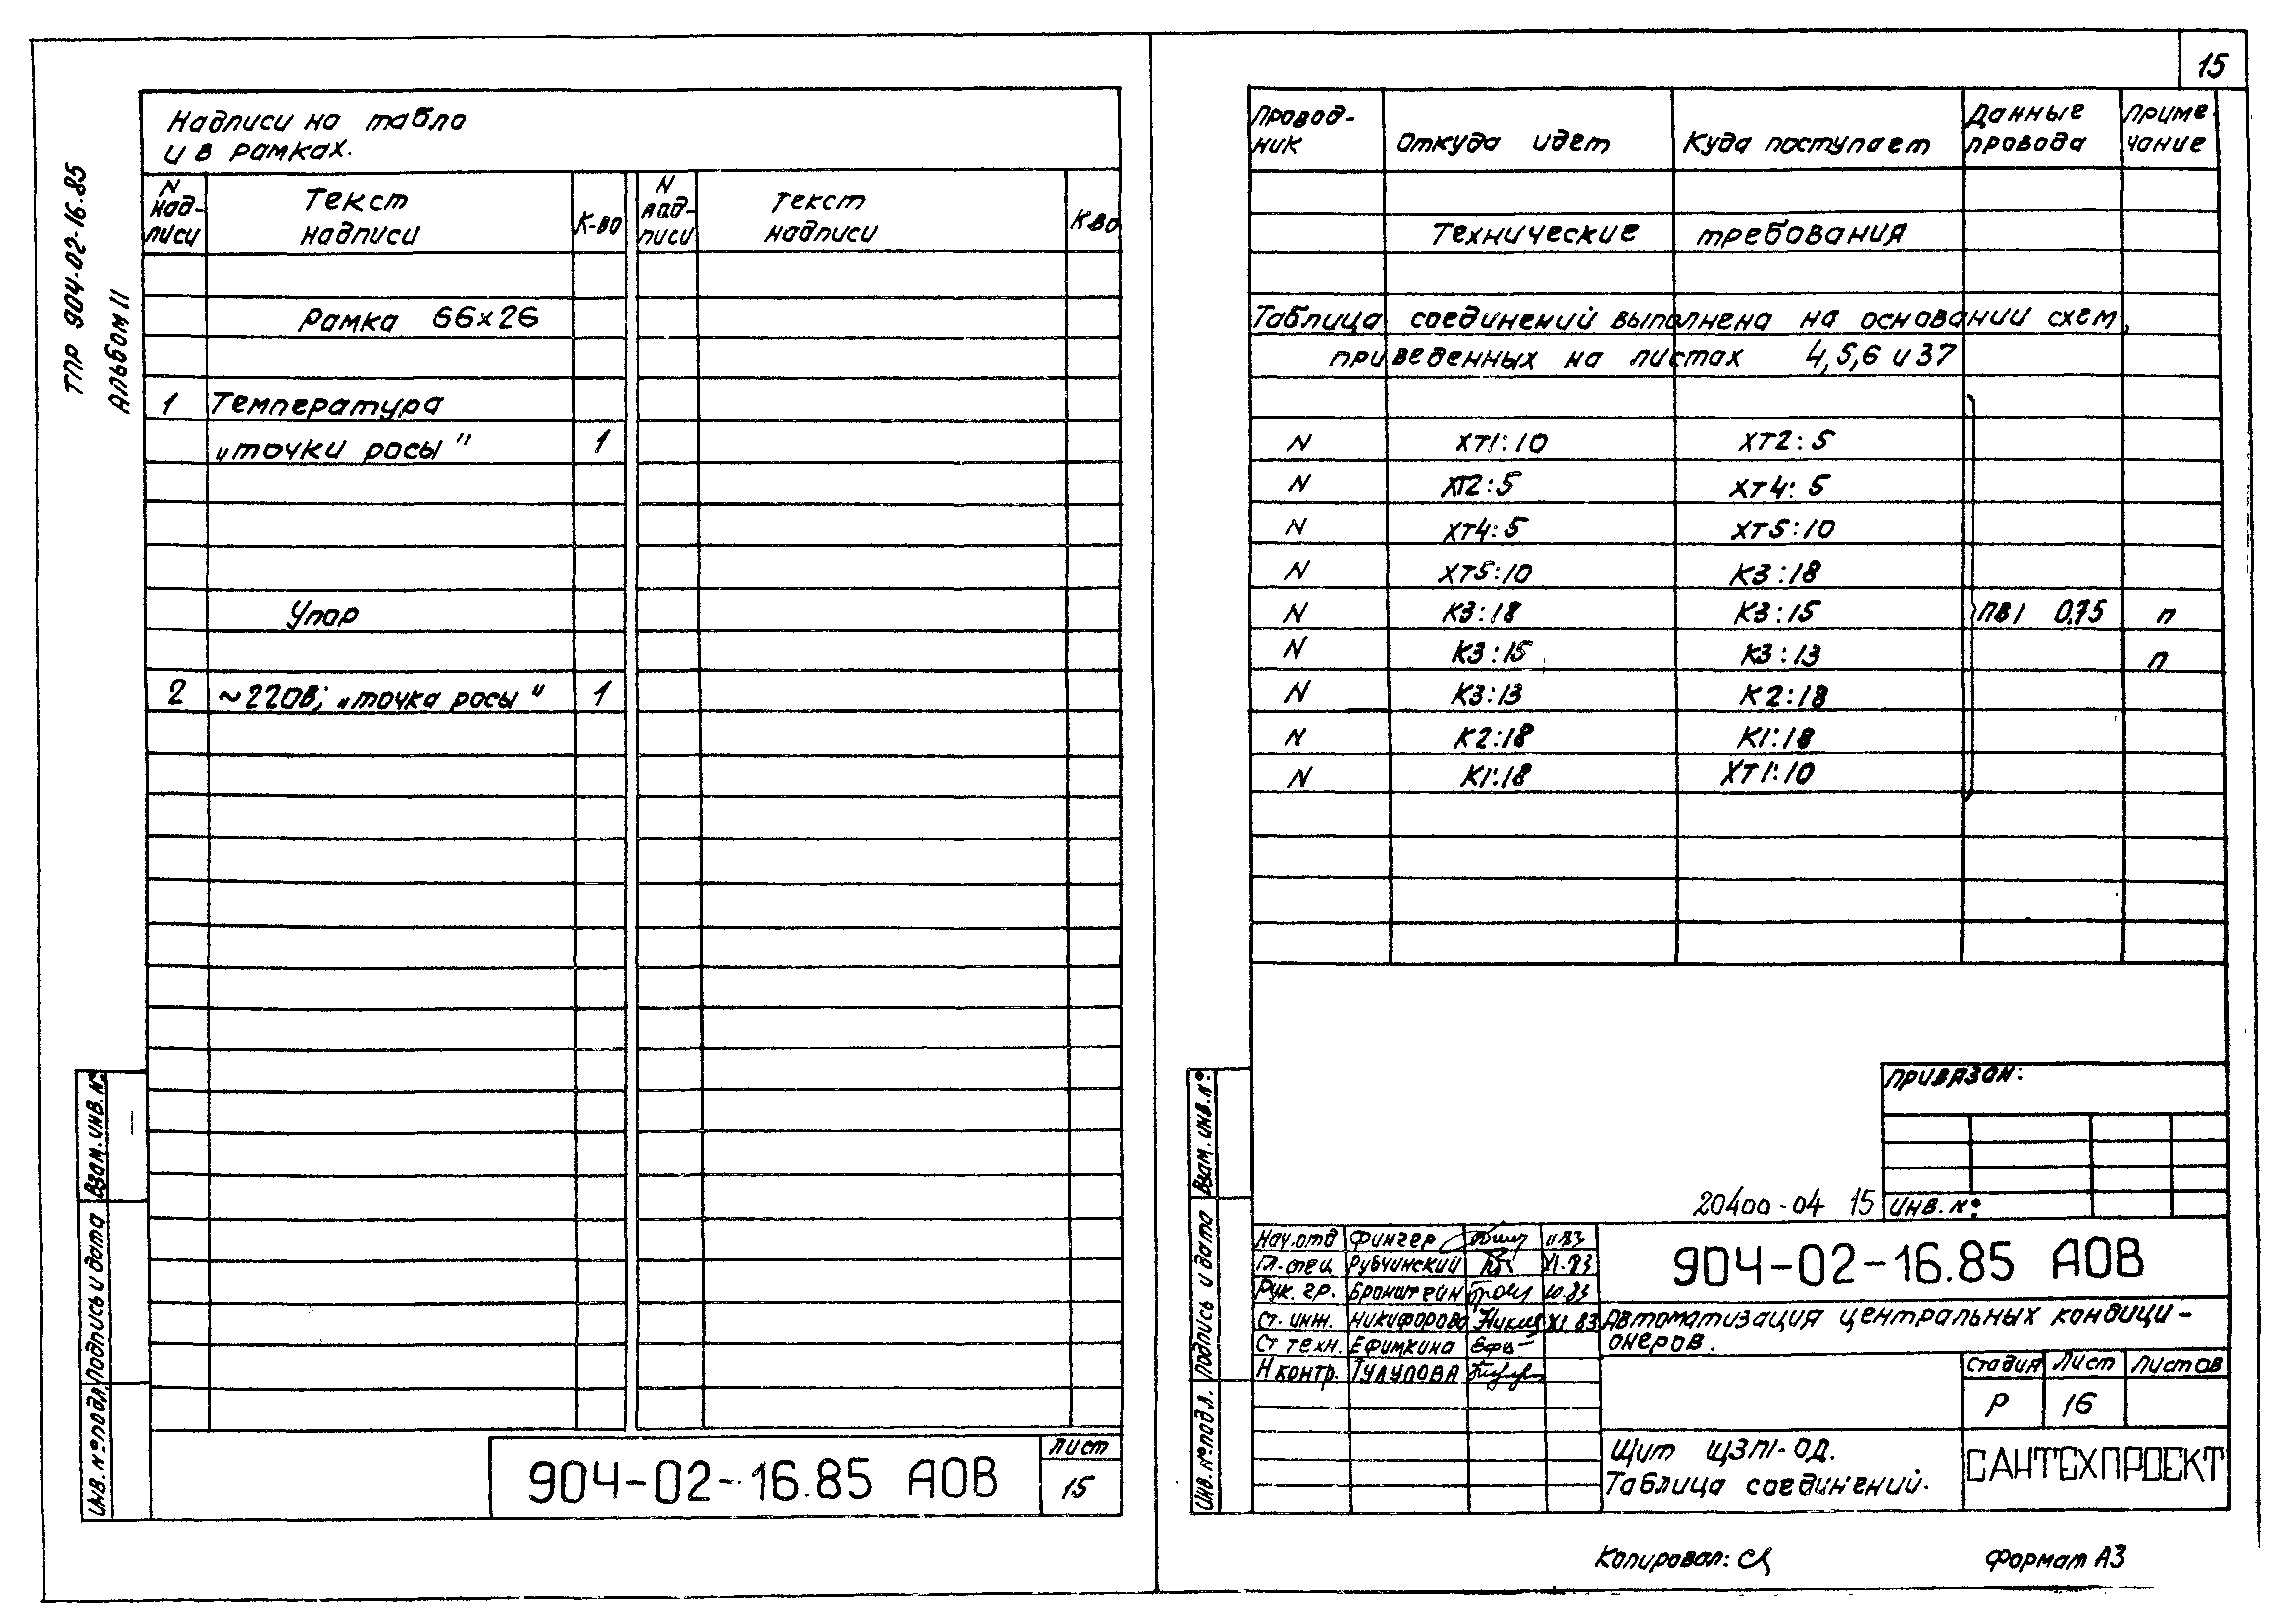 15
ТПР 904-02-16.85
Альбом II
Надписи на табло
и в рамках.
N надписи Текст надписи К-во N надписи Текст надписи К-во
Рамка 66×26
1 Температура
„точки росы" 1
Упор
2 ~220В; „точка росы" 1
Взам. инв. №
Подпись и дата
Инв. № подл.
904-02-16.85 АОВ
Лист
15
Провод-
ник Откуда идет Куда поступает Данные провода Приме-
чание
Технические требования
Таблица соединений выполнена на основании схем,
приведенных на листах 4,5,6 и 37
N ХТ1:10 ХТ2:5
N ХТ2:5 ХТ4:5
N ХТ4:5 ХТ5:10
N ХТ5:10 К3:18
N К3:18 К3:15 ПВ1 0,75 п
N К3:15 К3:13 п
N К3:13 К2:18
N К2:18 К1:18
N К1:18 ХТ1:10
Привязан:
Инв. №
20400-04 15
Взам. инв. №
Подпись и дата
Инв. № подл.
Нач. отд Фингер
Гл. спец Рубчинский
Рук. гр. Бронштейн
Ст. инж. Никифорова XI.83
Ст техн. Ефимкина
Н контр. Тулупова
904-02-16.85 АОВ
Автоматизация центральных кондици-
онеров.
Стадия Лист Листов
Р 16
Щит ЩЗП1-ОД.
Таблица соединений.
САНТЕХПРОЕКТ
Копировал:
Формат А3